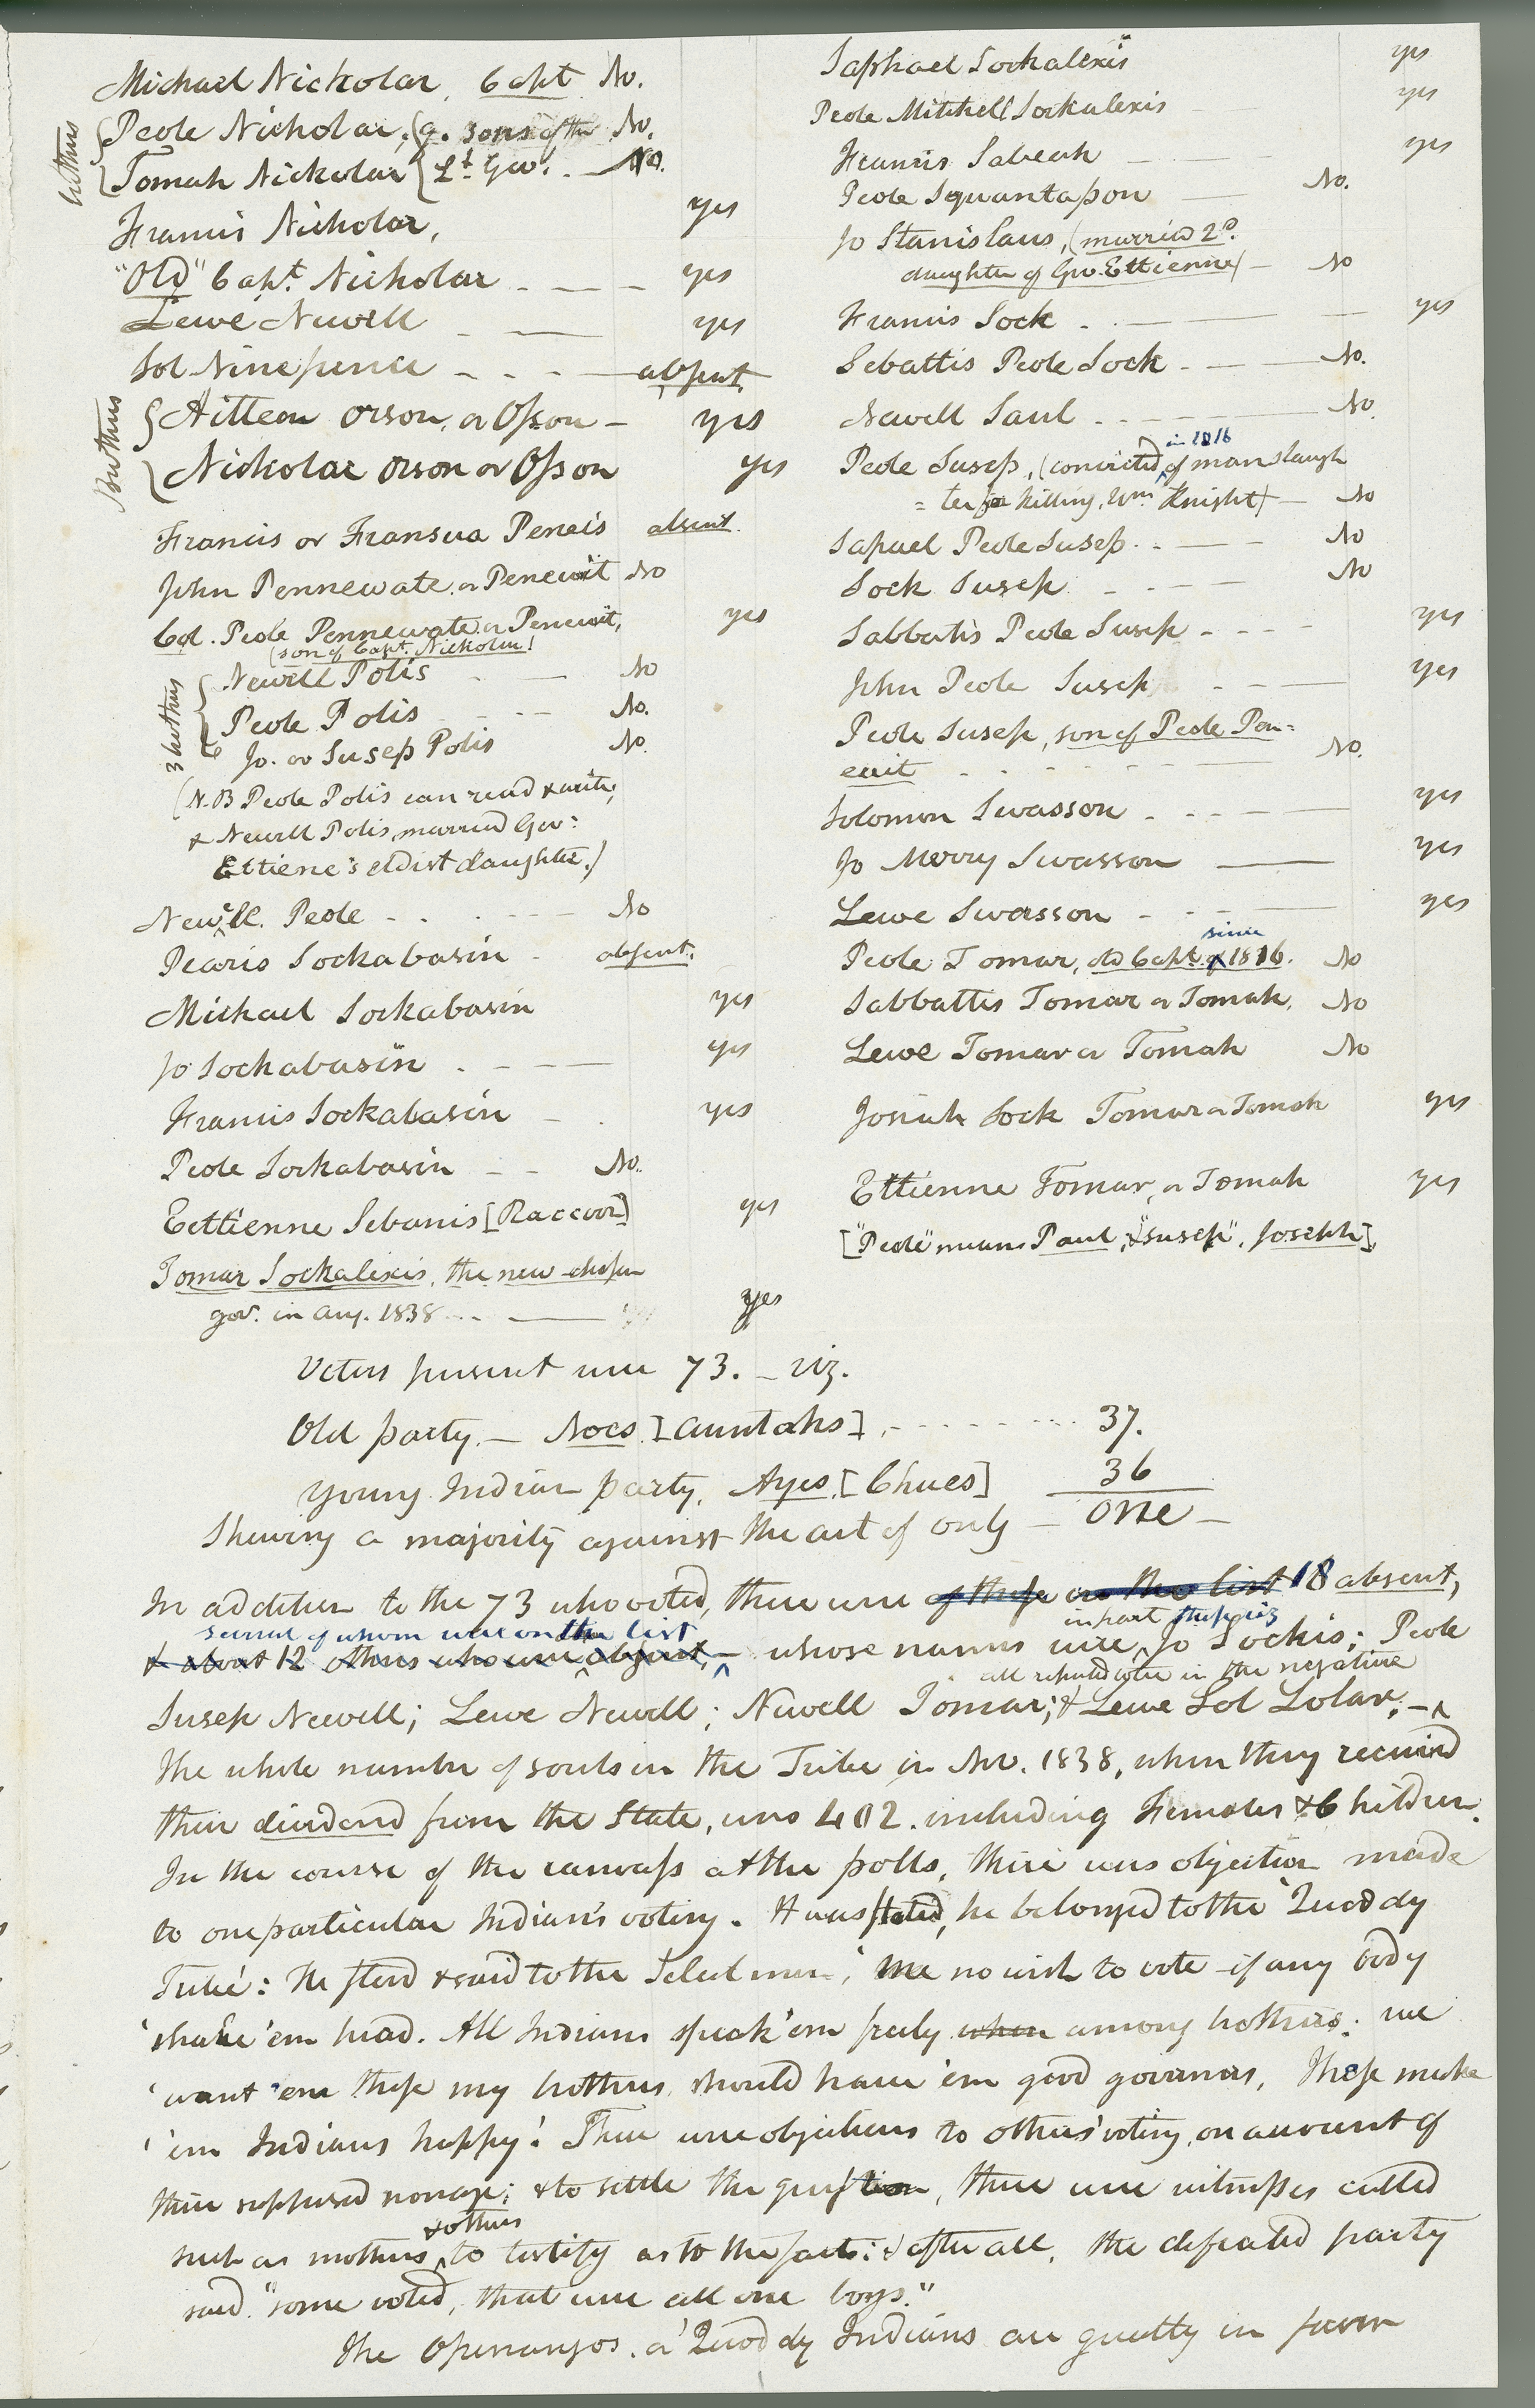 Michael Nickolar, Capt No.
brothers
Peole Nicholar, (g. sons of the No.
Tomah Nickolar Lt. Gov. - No.
Francis Nicholar, yes
"Old" Capt. Nicholar - - - yes
Lewe Newell - - yes
Sol Ninepence - - - absent
Brothers
Aitteon Orson, or Osson - yes
Nickolar Orson or Osson yes
Francis or Fransua Peneis absent
John Pennewate or Penewit No
Col. Peole Pennewate or Penewit, yes
(son of Capt. Nickolar)
3 brothers
Newell Polis - - No
Peole Polis - - No.
Jo. or Susep Polis No.
(N.B Peole Polis can read & write,
& Newell Polis married Gov:
Ettiene's eldist daughter.)
Newell. Peole - - - - No
Pearis Sockabasin - absent.
Michael Sockabasin yes
Jo Sockabasin - - yes
Francis Sockabasin - - yes
Peole Sockabasin - - No.
Eettienne Sebanis [Raccoon] yes
Tomar Sockalexis, the new chosen
gov. in Aug. 1838 - - - yes
Saphael Sockalexis yes
Peole Mitchell Sockalexis yes
Francis Sabeah - - yes
Peole Squantapon - No.
Jo Stanislaus, (married 2d.
daughter of Gov. Ettienne) - No
Francis Sock - - - - yes
Sebattis Peole Sock - - - No.
Newell Saul - - - - No.
in 1816
Peole Susep, (convicted, of manslaugh
= ter for killing, Wm. Knight) - No
Sapael Peole Susep - - - No
Sock Susep - - - No
Sabbatis Peole Susep - - - - yes
John Peole Susep - - - yes
Peole Susep, son of Peole Pen=
ewit - - - - - No.
Solomon Swasson - - - - yes
Jo Merry Swasson - yes
Lewe Swasson - - - - yes
since
Peole Tomar, old Capt. of 1816. No
Sabbattis Tomar or Tomah, No
Lewe Tomar or Tomah No
Josiah Sock Tomar or Tomah yes
Ettienne Tomar, or Tomah yes
["Peole" means Paul; & "Susep", Joseph]
Voters present were 73. - viz.
Old party. - Noes [Auntahs], - - - - 37.
Young Indian party, Ayes, [Chues] 36
Shewing a majority against the act of only - one -
In addition to the 73 who voted, there were of those on the list 18 absent,
several of whom were on the list in part these, viz
& about 12 others who were absent, - whose names were, Jo Sockis; Peole
all reputed to be in the negative
Susep Newell; Lewe Newell; Newell Tomar; & Lewe Sol Lolar; -
The whole number of souls in the Tribe in Nov. 1838, when they received
their dividend from the State, was 402. including Females & Children.
In the course of the canvass at the polls, there was objection made
to one particular Indian's voting. It was stated, he belonged to the 'Quoddy
Tribe': He stood & said to the Selectmen, 'me no wish to vote if any body
'shake 'em head. All Indians speak 'em freely when among brothers; we
'want 'em these my brothers should have 'em good governors, These make
''em Indians happy'. There were objections to others' voting, on account of
their supposed nonage; & to settle the question, there were witnesses called
& others
such as mothers, to testify as to the facts: & after all, the defeated party
said, "some voted, that were all one boys."
The Openangos, or Quoddy Indians are greatly in favor